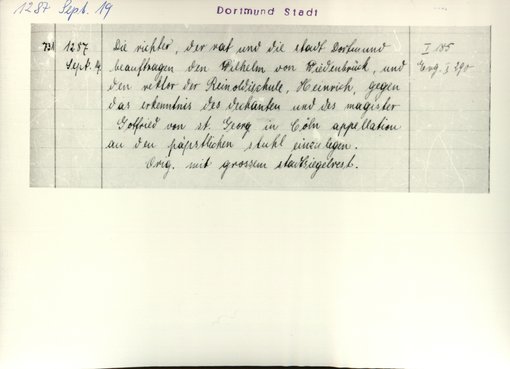 1287 Sept. 19
Dortmund Stadt
73 1287 Die richter, der rat und die stadt Dortmund I 185
Sept. 19. beauftragen den Wilhelm von Wiedenbrück, und Erg. I 290
den rektor der Reinoldischule, Heinrich, gegen
das erkenntnis des dechanten und des magister
Gottfried von st. Georg in Cöln appellation
an den päpstlichen stuhl einzulegen.
Orig. mit grossem stadtsiegelrest.